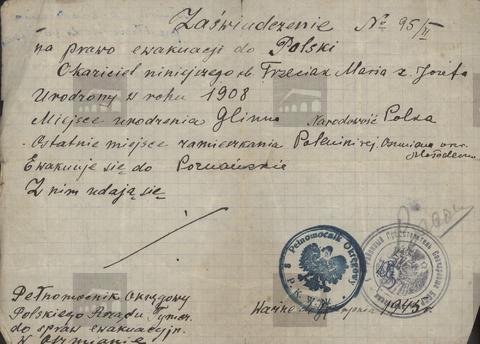 Zaświadczenie No 95/II
na prawo ewakuacji do Polski
Okaziciel niniejszego ob. Trzeciak Maria z Józefa
Urodzony w roku 1908
Miejsce urodzenia Glinna Narodowość Polka
Ostatnie miejsce zamieszkania
Ewakuuje się do Poznańskie
Z nim udają się
Pełnomocnik Okręgowy
P.K.W.N.
Ważne 1945
Pełnomocnik Okręgowy
Polskiego Rządu Tymcz.
do spraw ewakuacyjn.
w Oszmianie